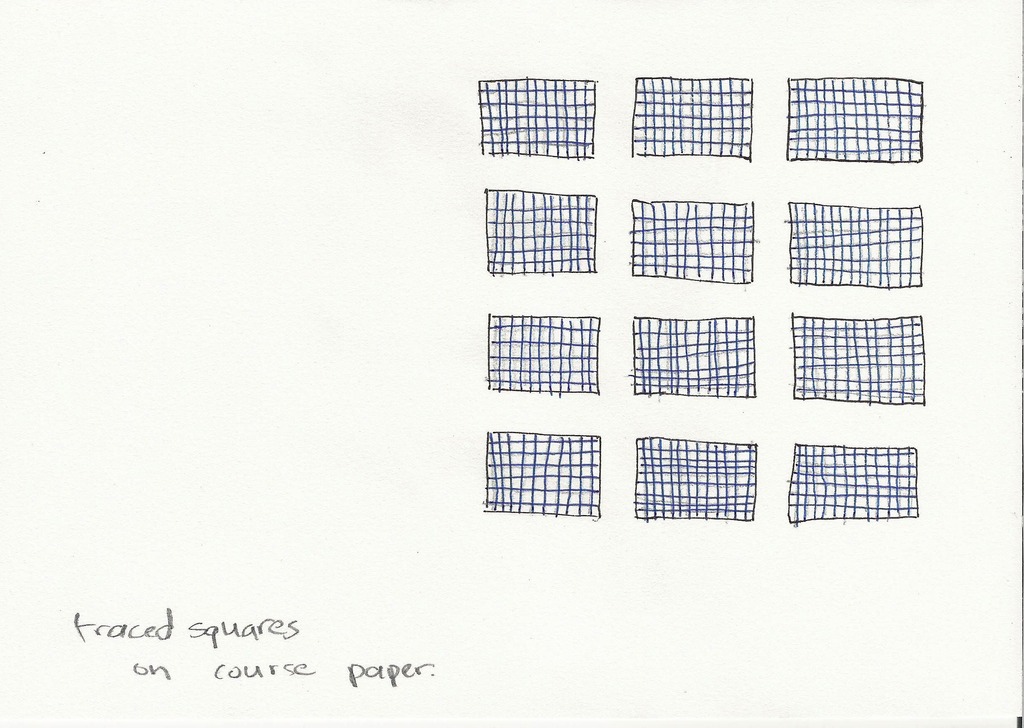 traced squares
on course paper.